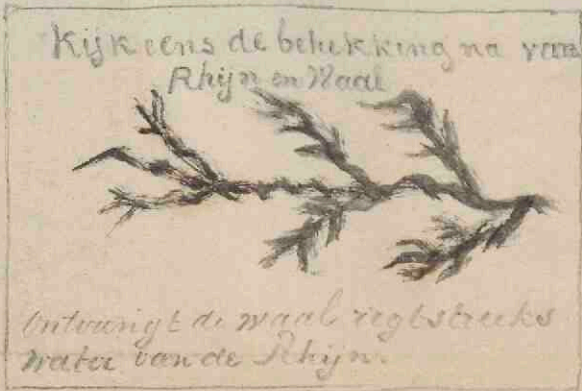 Kijk eens de betrekking na van
Rhijn en Waal
Ontvangt de waal regtstreeks
water van de Rhijn.